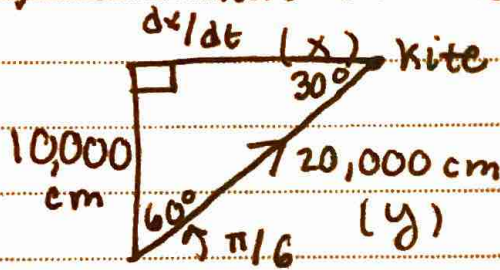 dx/dt (x) kite
30°
10,000 cm
20,000 cm (y)
60°
π/6